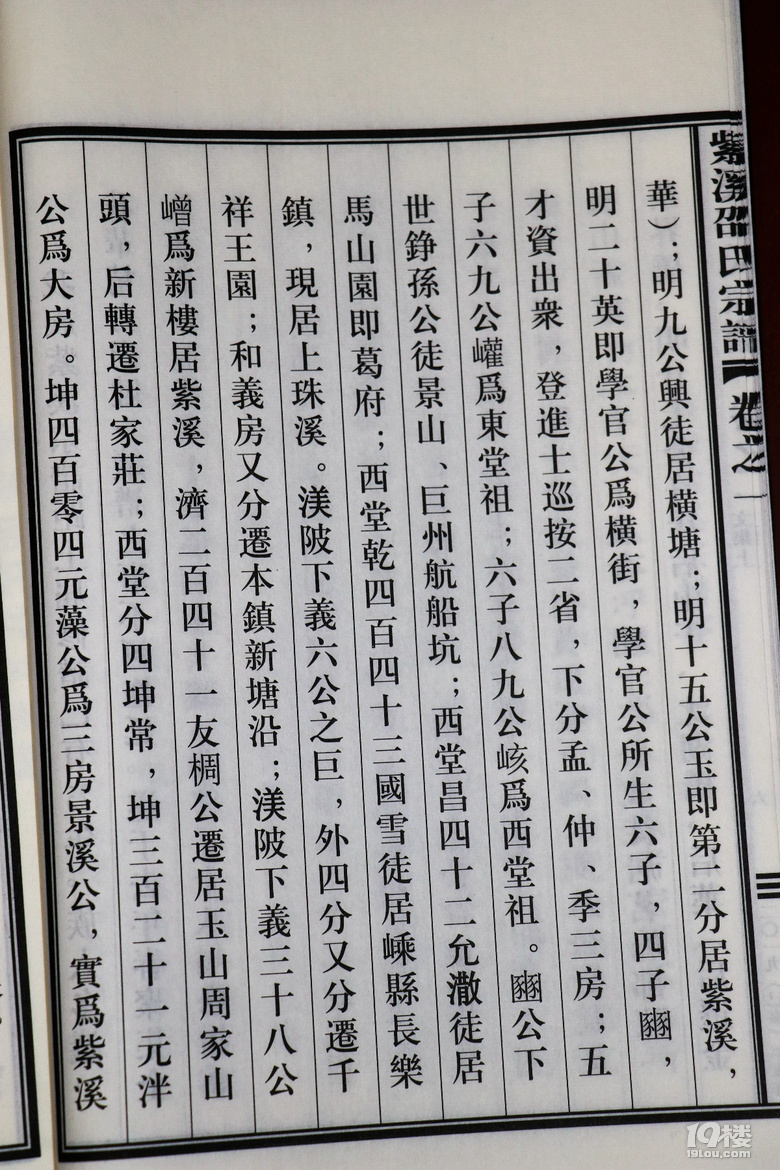 紫溪邵氏宗譜 卷之一
華）；明九公興徒居橫塘；明十五公玉即第二分居紫溪，
明二十英即學官公爲橫街，學官公所生六子，四子豳，
才資出衆，登進士巡按二省，下分孟、仲、季三房；五
子六九公巏爲東堂祖；六子八九公峐爲西堂祖。豳公下
世錚孫公徒景山、巨州航船坑；西堂昌四十二允潵徒居
馬山園即葛府；西堂乾四百四十三國雪徒居嵊縣長樂
鎮，現居上珠溪。渼陂下義六公之巨，外四分又分遷千
祥王園；和義房又分遷本鎮新塘沿；渼陂下義三十八公
嶒爲新樓居紫溪，濟二百四十一友椆公遷居玉山周家山
頭，后轉遷杜家莊；西堂分四坤常，坤三百二十一元泮
公爲大房。坤四百零四元藻公爲三房景溪公，實爲紫溪
19樓
19lou.com